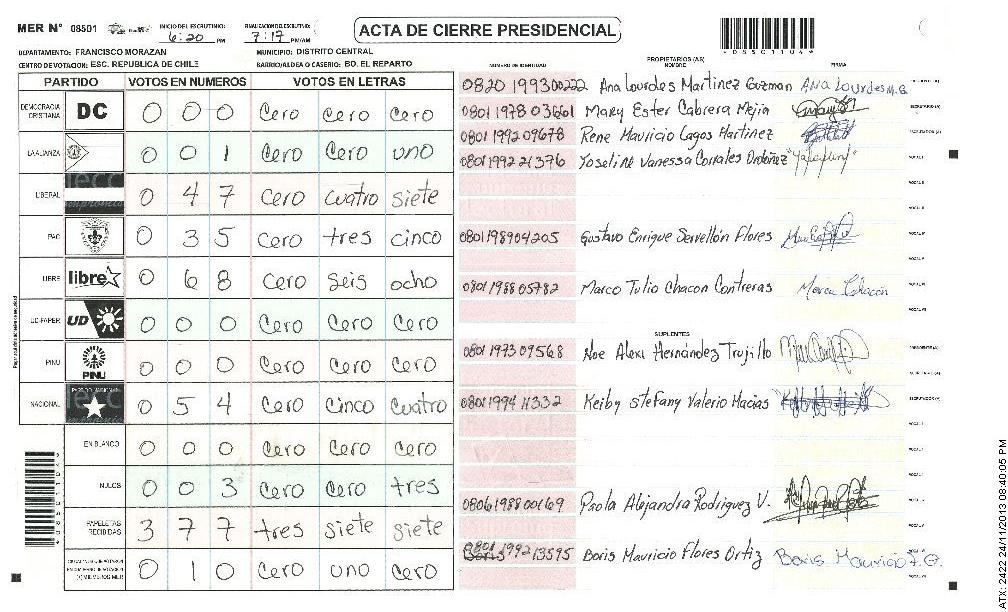 MER N° 08501 INICIO DEL ESCRUTINIO: 6:20 PM FINALIZACION DEL ESCRUTINIO: 7:17 PM/AM ACTA DE CIERRE PRESIDENCIAL
DEPARTAMENTO: FRANCISCO MORAZAN MUNICIPIO: DISTRITO CENTRAL
CENTRO DE VOTACION: ESC. REPUBLICA DE CHILE BARRIO/ALDEA O CASERIO: BO. EL REPARTO
PARTIDO VOTOS EN NUMEROS VOTOS EN LETRAS
DEMOCRACIA CRISTIANA DC 0 0 0 Cero Cero Cero
LA ALIANZA 0 0 1 Cero Cero uno
LIBERAL 0 4 7 Cero cuatro siete
PAC 0 3 5 Cero tres cinco
LIBRE libre 0 6 8 Cero seis ocho
UD-FAPER UD 0 0 0 Cero Cero Cero
PINU PINU 0 0 0 Cero Cero Cero
NACIONAL 0 5 4 Cero Cinco Cuatro
EN BLANCO 0 0 0 Cero Cero Cero
NULOS 0 0 3 Cero Cero tres
PAPELETAS RECIBIDAS 3 7 7 tres siete siete
0 1 0 Cero uno Cero
PROPIETARIOS (AS)
NUMERO DE IDENTIDAD NOMBRE FIRMA
0820 1993 00222 Ana Lourdes Martinez Guzman Ana Lourdes M.G.
0801 1978 03661 Mary Ester Cabrera Mejia
0801 1992 09678 Rene Mauricio Lagos Martinez
0801 1992 21376 Yoseline Vanessa Corrales Ordoñez
0801198904205 Gustavo Enrique Servellón Flores
0801 1988 05782 Marco Tulio Chacon Contreras Marco Chacon
SUPLENTES
0801 1973 09568 Noe Alexi Hernández Trujillo
0801 1994 11332 Keiby Stefany Valerio Macias
0806 1988 00169 Paola Alejandra Rodriguez V.
0801 1992 13595 Boris Mauricio Flores Ortiz Boris Mauricio F.O.
ATX: 2422 24/11/2013 08:40:05 PM